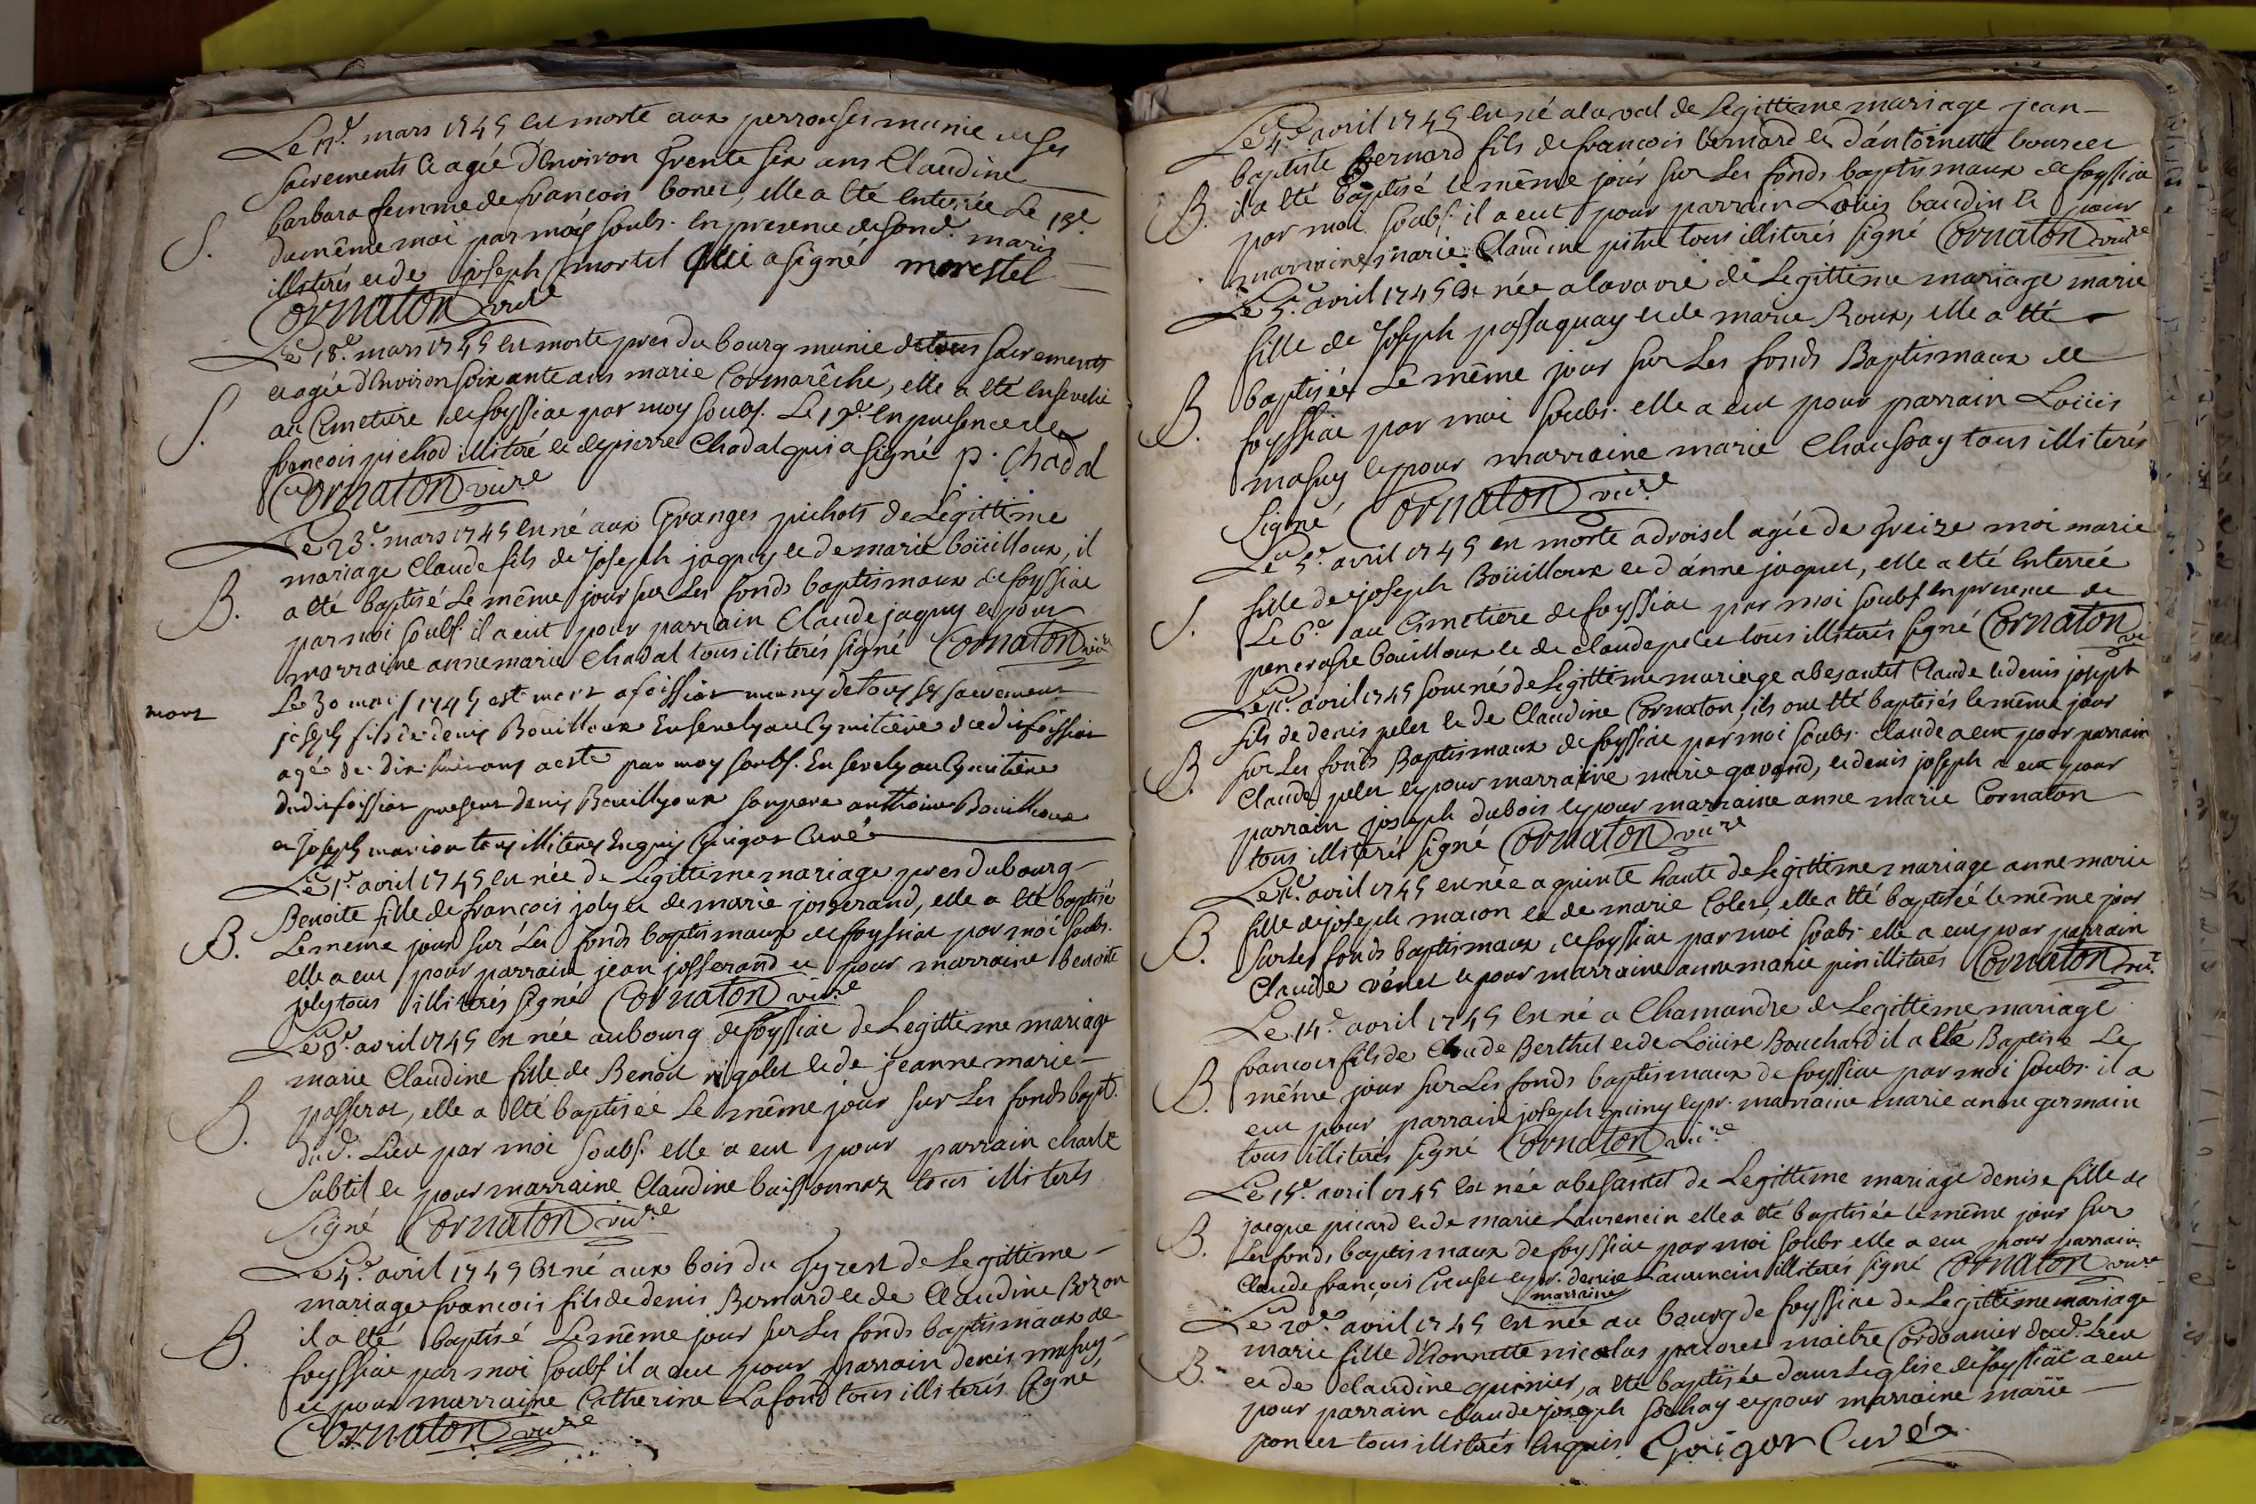 Le 17e. mars 1745 est morte aux perrouses munie de ses
sacrements et agée d'Environ trente six ans Claudine
S. barbara femme de françois bonet, elle a été Enterrée Le 18e.
du même moi par moy soubs. En presence de sond. maris
illiterés et de joseph mortel qui a signé morestel
Cornaton vicre
Le 18e. mars 1745 est morte pres du bourg munie de tous sacrements
et agée d'Environ soixante ans marie Cormarêche, elle a été Ensevelie
S. au Cimetiere de foyssiac par moy soubs. Le 19e. En presence de
francois pichod illitéré et de pierre Chadal qui a signé p. Chadal
Cornaton vicre
Le 23e. mars 1745 est né aux Granges pichots de Legittime
mariage Claude fils de Joseph jaquy et de marie boüilloux, il
B. a été baptisé Le même jour sur Les fonds baptismaux de foyssiac
par moi soubs. il a eut pour parrain Claude jaquy et pour
marraine anne marie Chadal tous illiterés signé Cornaton vicre
mort Le 30 mars 1745 est mort a foissiat muny de tous ses sacrement
joseph fils de denis Bouilloux Ensevely au Cymitière dudit foissiat
agé de dix huit ans a esté par moy soubs. Ensevely au Cymitiere
dudit foissiat present denis Bouillyoux son pere anthoine Bouilloux
et Joseph marion tous illiteres Enquis Guigot Curé
Le 1er. avril 1745 est née de Legittime mariage pres du bourg
Benoite fille de francois joly et de marie josserand, elle a été baptisé
B. Le même jour sur Les fonds baptismaux de foyssiac par moi soubs.
elle a eut pour parrain jean josserand et pour marraine benoite
joly tous illiterés signé Cornaton vicre
Le 3e. avril 1745 est née au bourg de foyssiac de Legittime mariage
marie Claudine fille de Benoit rigolet et de jeanne marie
B. passerat, elle a été baptisée Le même jour sur Les fonds bapt.
dud. Lieu par moi soubs. elle a eut pour parrain charle
Subtil et pour marraine Claudine buissonnaz tous illiterés
signé Cornaton vicre
Le 4e. avril 1745 est né aux bois du tyrest de Legittime
mariage francois fils de denis Bernard et de Claudine Bozon
B. il a été baptisé Le même jour sur Les fonds baptismaux de
foyssiac par moi soubs il a eut pour parrain denis masuy
et pour marraine Catherine Lafond tous illiterés signé
Cornaton vicre
Le 4e. avril 1745 est né a laval de Legittime mariage jean
baptiste bernard fils de francois bernard et d'antoinette bourcet
B. il a été baptisé Le même jour sur Les fonds baptismaux de foyssiac
par moi soubs. il a eut pour parrain Louis baudin et pour
marraine marie Claudine pitre tous illiterés signé Cornaton vicre
Le 5e. avril 1745 est née a lavavre de Legittime mariage marie
fille de Joseph passaquay et de marie Roux, elle a été
B. baptisée Le même jour sur Les fonds Baptismaux de
foyssiac par moi soubs. elle a eut pour parrain Loüis
masuy et pour marraine marie Chaussay tous illiterés
signé Cornaton vicre
Le 5e. avril 1745 est morte a droisel agée de treize moi marie
fille de joseph Boüilloux et d'anne jaquet, elle a été Enterrée
S. Le 6e. au Cimetiere de foyssiac par moi soubs En presence de
bouilloux et de claude pelet tous illiterés signé Cornaton vic
Le 11e. avril 1745 sont né de Legittime mariage a besantet Claude et denis joseph
fils de denis pelet et de Claudine Cornaton, ils ont été baptisés le même jour
B. sur Les fonds Baptismaux de foyssiac par moi soubs. claude a eut pour parrain
Claude pelet et pour marraine marie gavand, et denis joseph a eut pour
parrain joseph dubois et pour marraine anne marie Cornaton
tous illiterés signé Cornaton vicre
Le 11e. avril 1745 est née a quinte haute de Legittime mariage anne marie
B. fille de joseph macon et de marie Colet, elle a été baptisée le même jour
sur Les fonds baptismaux de foyssiac par moi soubs. elle a eut pour parrain
Claude vénet et pour marraine anne marie pin illiterés Cornaton vicre
Le 14e. avril 1745 est né a Chamandre de Legittime mariage
francois fils de Claude Berthet et de Loüise Bouchard il a été Baptisé Le
B. même jour sur Les fonds baptismaux de foyssiac par moi soubs. il a
eut pour parrain joseph et pr. marraine marie anne germain
tous illiterés signé Cornaton vicre
Le 15e. avril 1745 est née a besantet de Legittime mariage denise fille de
B. jacque picard et de marie Laurencin elle a été baptisée le même jour sur
Les fonds baptismaux de foyssiac par moi soubs elle a eut pour parrain
Claude françois Creuset et pr. denise Laurencin illiterés signé Cornaton vicre
marraine
Le 20e. avril 1745 est née au bourg de foyssiac de Legittime mariage
marie fille d'honnette nicolas maitre Cordonnier dud. Lieu
B. et de claudine quinier, a été baptisée dans L'eglise de foyssiac a eut
pour parrain claude joseph sochay et pour marraine marie
poncet tous illiterés Enquis Guigot Curé